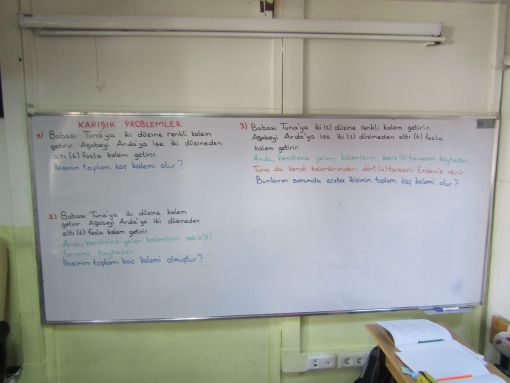 KARIŞIK PROBLEMLER
1) Babası Tuna'ya iki düzine renkli kalem
getirir. Ağabeyi Arda'ya ise iki düzineden
altı (6) fazla kalem getirir.
İkisinin toplam kaç kalemi olur?
2) Babası Tuna'ya iki düzine kalem
getirir. Ağabeyi Arda'ya iki düzineden
altı (6) fazla kalem getirir.
Arda, kendisine gelen kalemlerin sekiz (8)
tanesini kaybeder.
İkisinin toplam kaç kalemi olmuştur?
3) Babası Tuna'ya iki (2) düzine renkli kalem getirir.
Ağabeyi Arda'ya ise iki (2) düzineden altı (6) fazla
kalem getirir.
Arda, kendisine gelen kalemlerin sekiz (8) tanesini kaybeder.
Tuna da kendi kalemlerinden dört (4) tanesini Erdem'e verir.
Bunların sonunda acaba ikisinin toplam kaç kalemi olur?